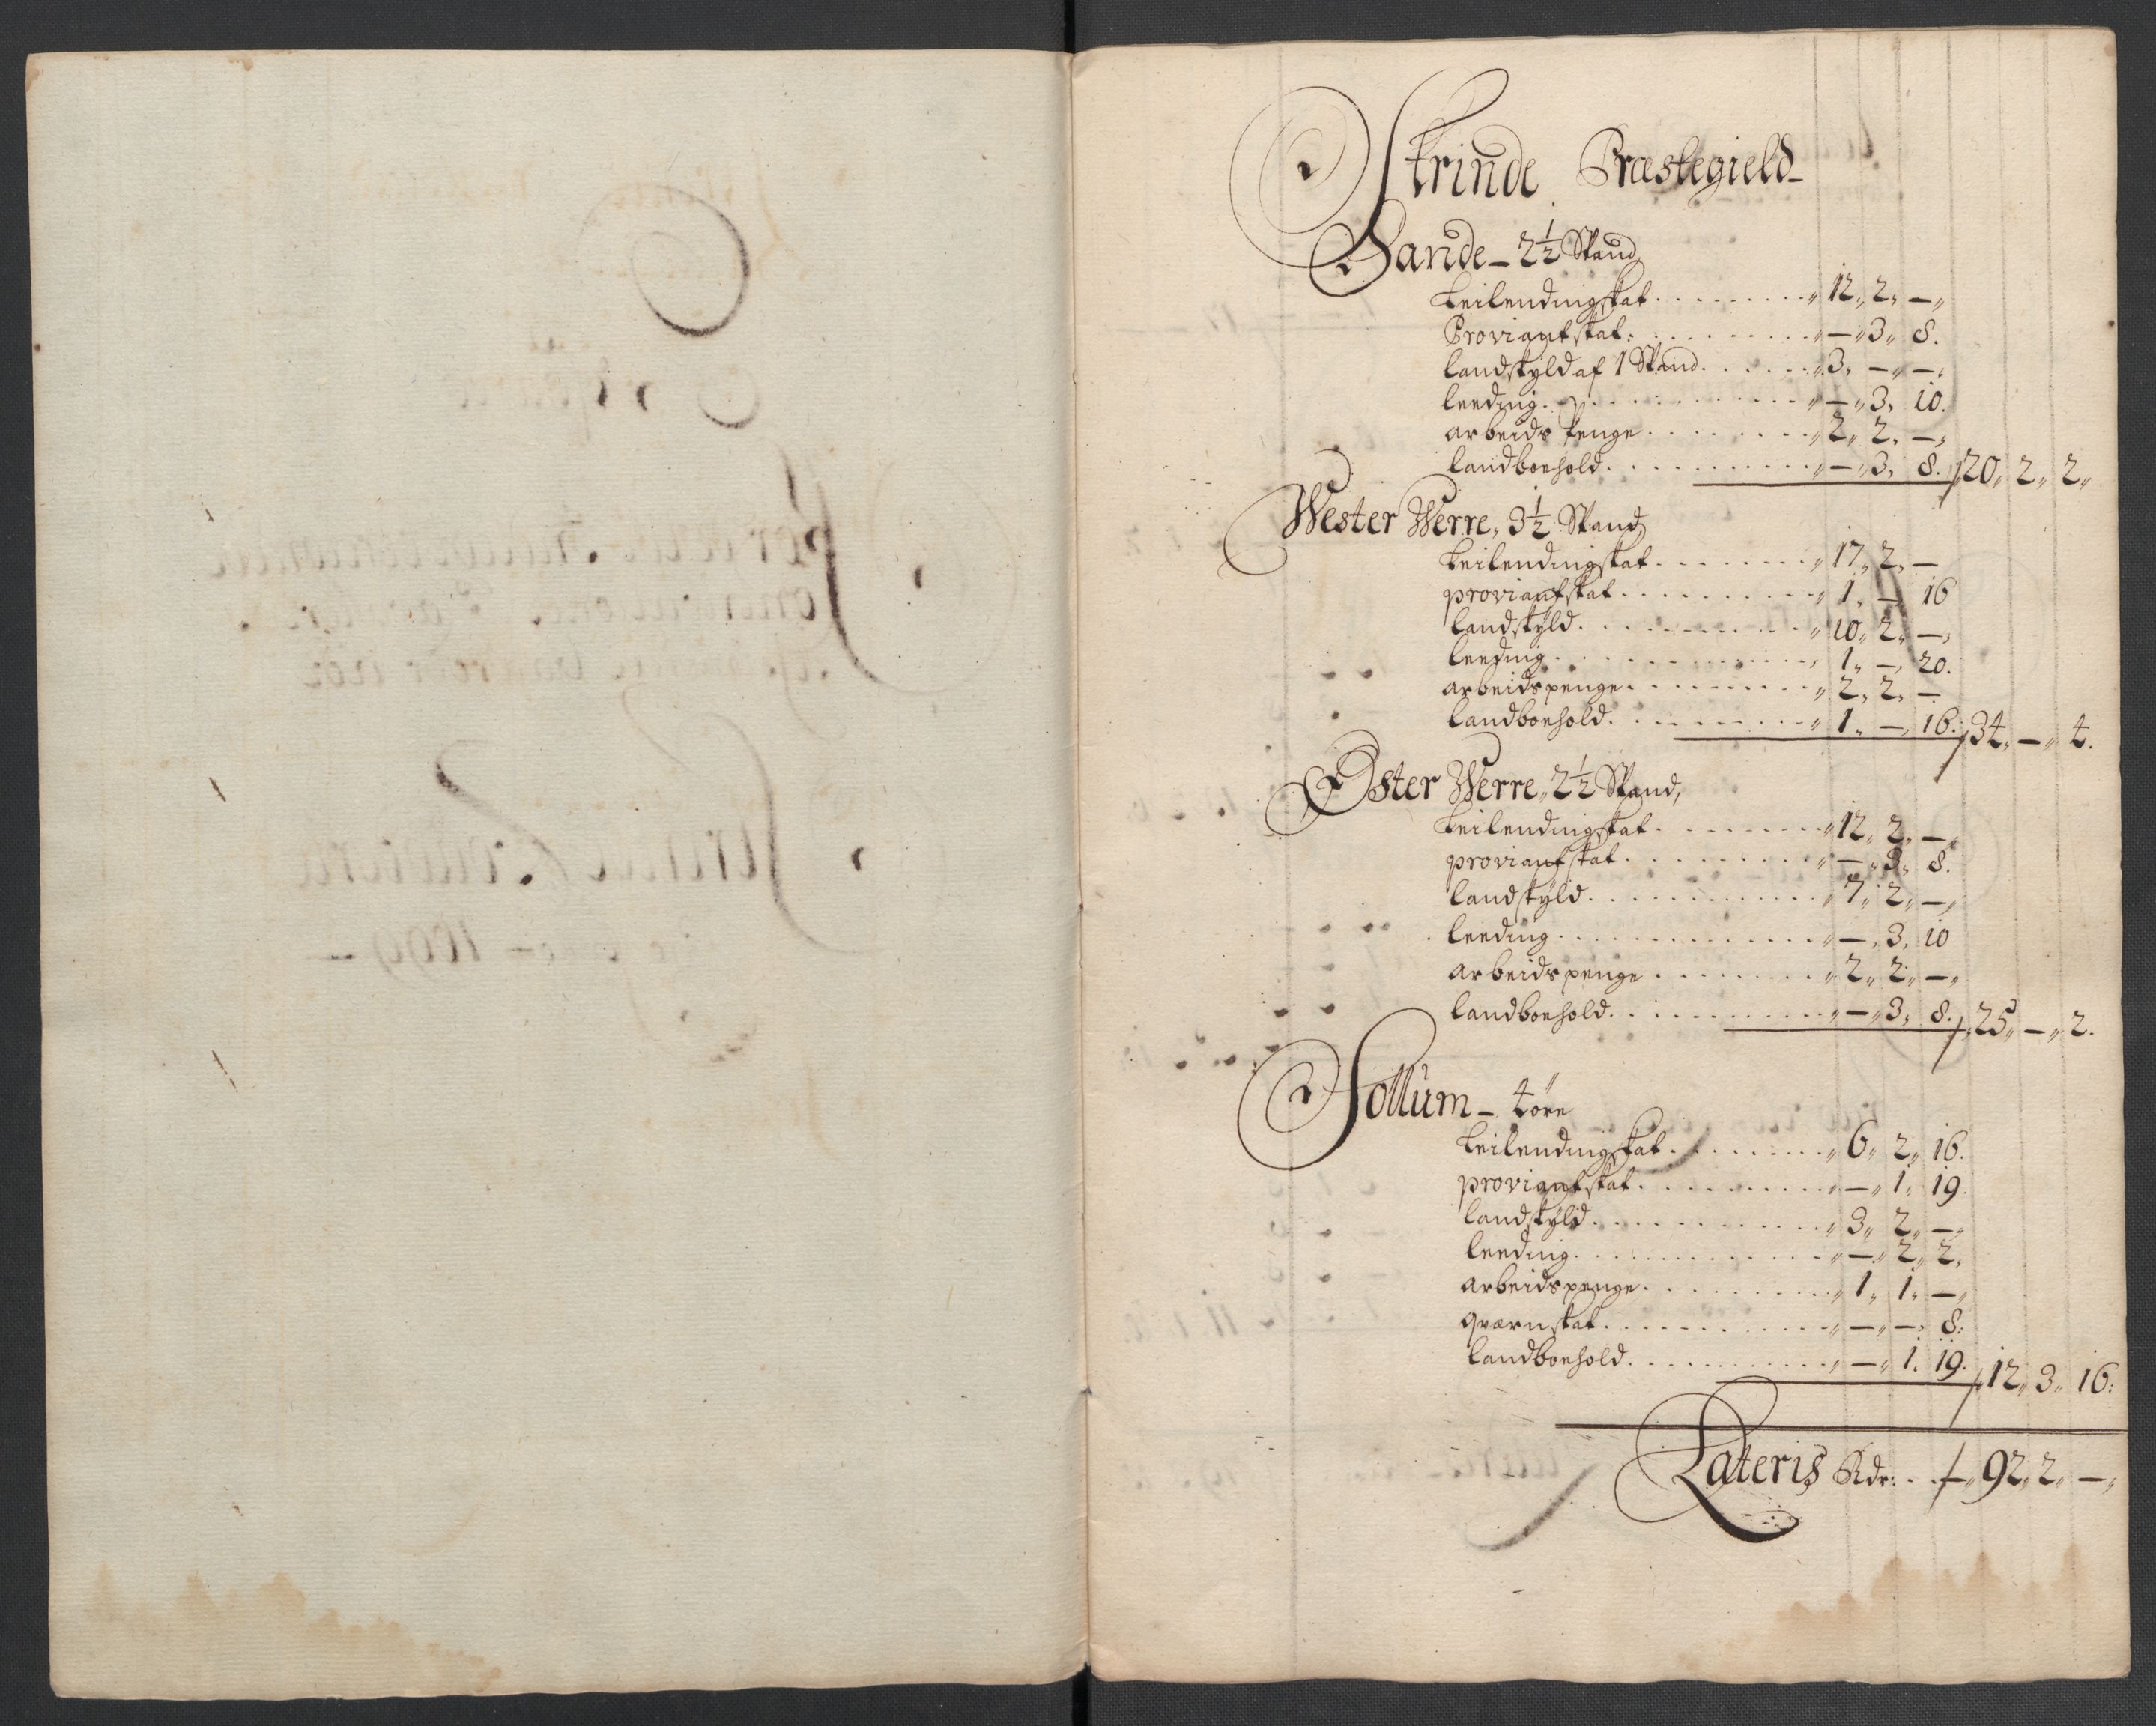 Strinde Præstegield
Sande 2½ Spand
Leilendingskat . . . . . . . . . „ 12„ 2„ —„
Proviantskat . . . . . . . . . . „ — „ 3„ 8.
landskyld af 1 Spand . . . . . . „ 3„ —„ —„
leeding . . . . . . . . . . . . „ — „ 3„ 10.
arbeids penge . . . . . . . . „ 2„ 2„ —„
landboehold . . . . . . . . . . „ — „ 3„ 8. 20„ 2„ 2„
Wester Werre, 3½ Spand
Leilendingskat . . . . . . . . „ 17„ 2„ —
proviantskat . . . . . . . . . . „ 1„ — 16
landskyld . . . . . . . . . . . „ 10„ 2„ —„
leeding . . . . . . . . . . . . „ 1„ —„ 20.
arbeidspenge . . . . . . . . . „ 2„ 2„ —
landboehold . . . . . . . . . . „ 1„ —„ 16. 34„ —„ 4.
Øster Werre, 2½ Spand,
Leilendingskat . . . . . . . . „ 12„ 2„ —„
proviantskat . . . . . . . . . . „ — „ 3„ 8.
landskyld . . . . . . . . . . . „ 7„ 2„ —„
leeding . . . . . . . . . . . . „ —„ 3„ 10
arbeidspenge . . . . . . . . „ 2„ 2„ —„
landboehold . . . . . . . . . . „ — „ 3„ 8. 25„ —„ 2.
Sollum 4 øre
Leilendingskat . . . . . . . . „ 6„ 2„ 16.
proviantskat . . . . . . . . . . „ — „ 1„ 19.
landskyld . . . . . . . . . . . „ 3„ 2„ —„
leeding . . . . . . . . . . . . „ —„ 2„ 2„
arbeidspenge . . . . . . . . . „ 1„ 1„ —„
qværnskat . . . . . . . . . . . „ —„ —„ 8:
landboehold . . . . . . . . . . „ — „ 1. 19. 12„ 3„ 16:
Lateris Rdr: . . 92„ 2„ —„